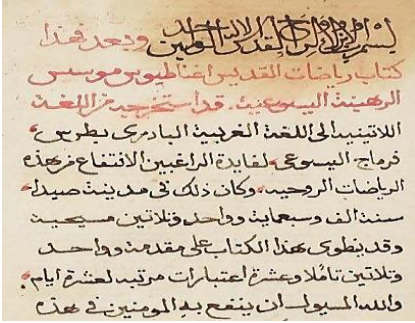 بسم الاب والابن والروح القدس الاله الواحد امين وبعد فهذا
كتاب رياضات القديس اغناطيوس موسس
الرهبنة اليسوعية. قد استخرجه من اللغة
اللاتينية الى اللغة العربية البادرى بطرس
فرماج اليسوعى لفايدة الراغبين الانتفاع من هذه
الرياضات الروحية وكان ذلك فى مدينة صيدا
سنة الف وسبعماية وواحد وثلاتين مسيحية
وقد ينطوى هذا الكتاب على مقدمة وواحد
وثلاتين تاملا وعشرة اعتبارات مرتبه لعشرة ايام.
والله المسيول ان ينفع به المومنين فى هذه